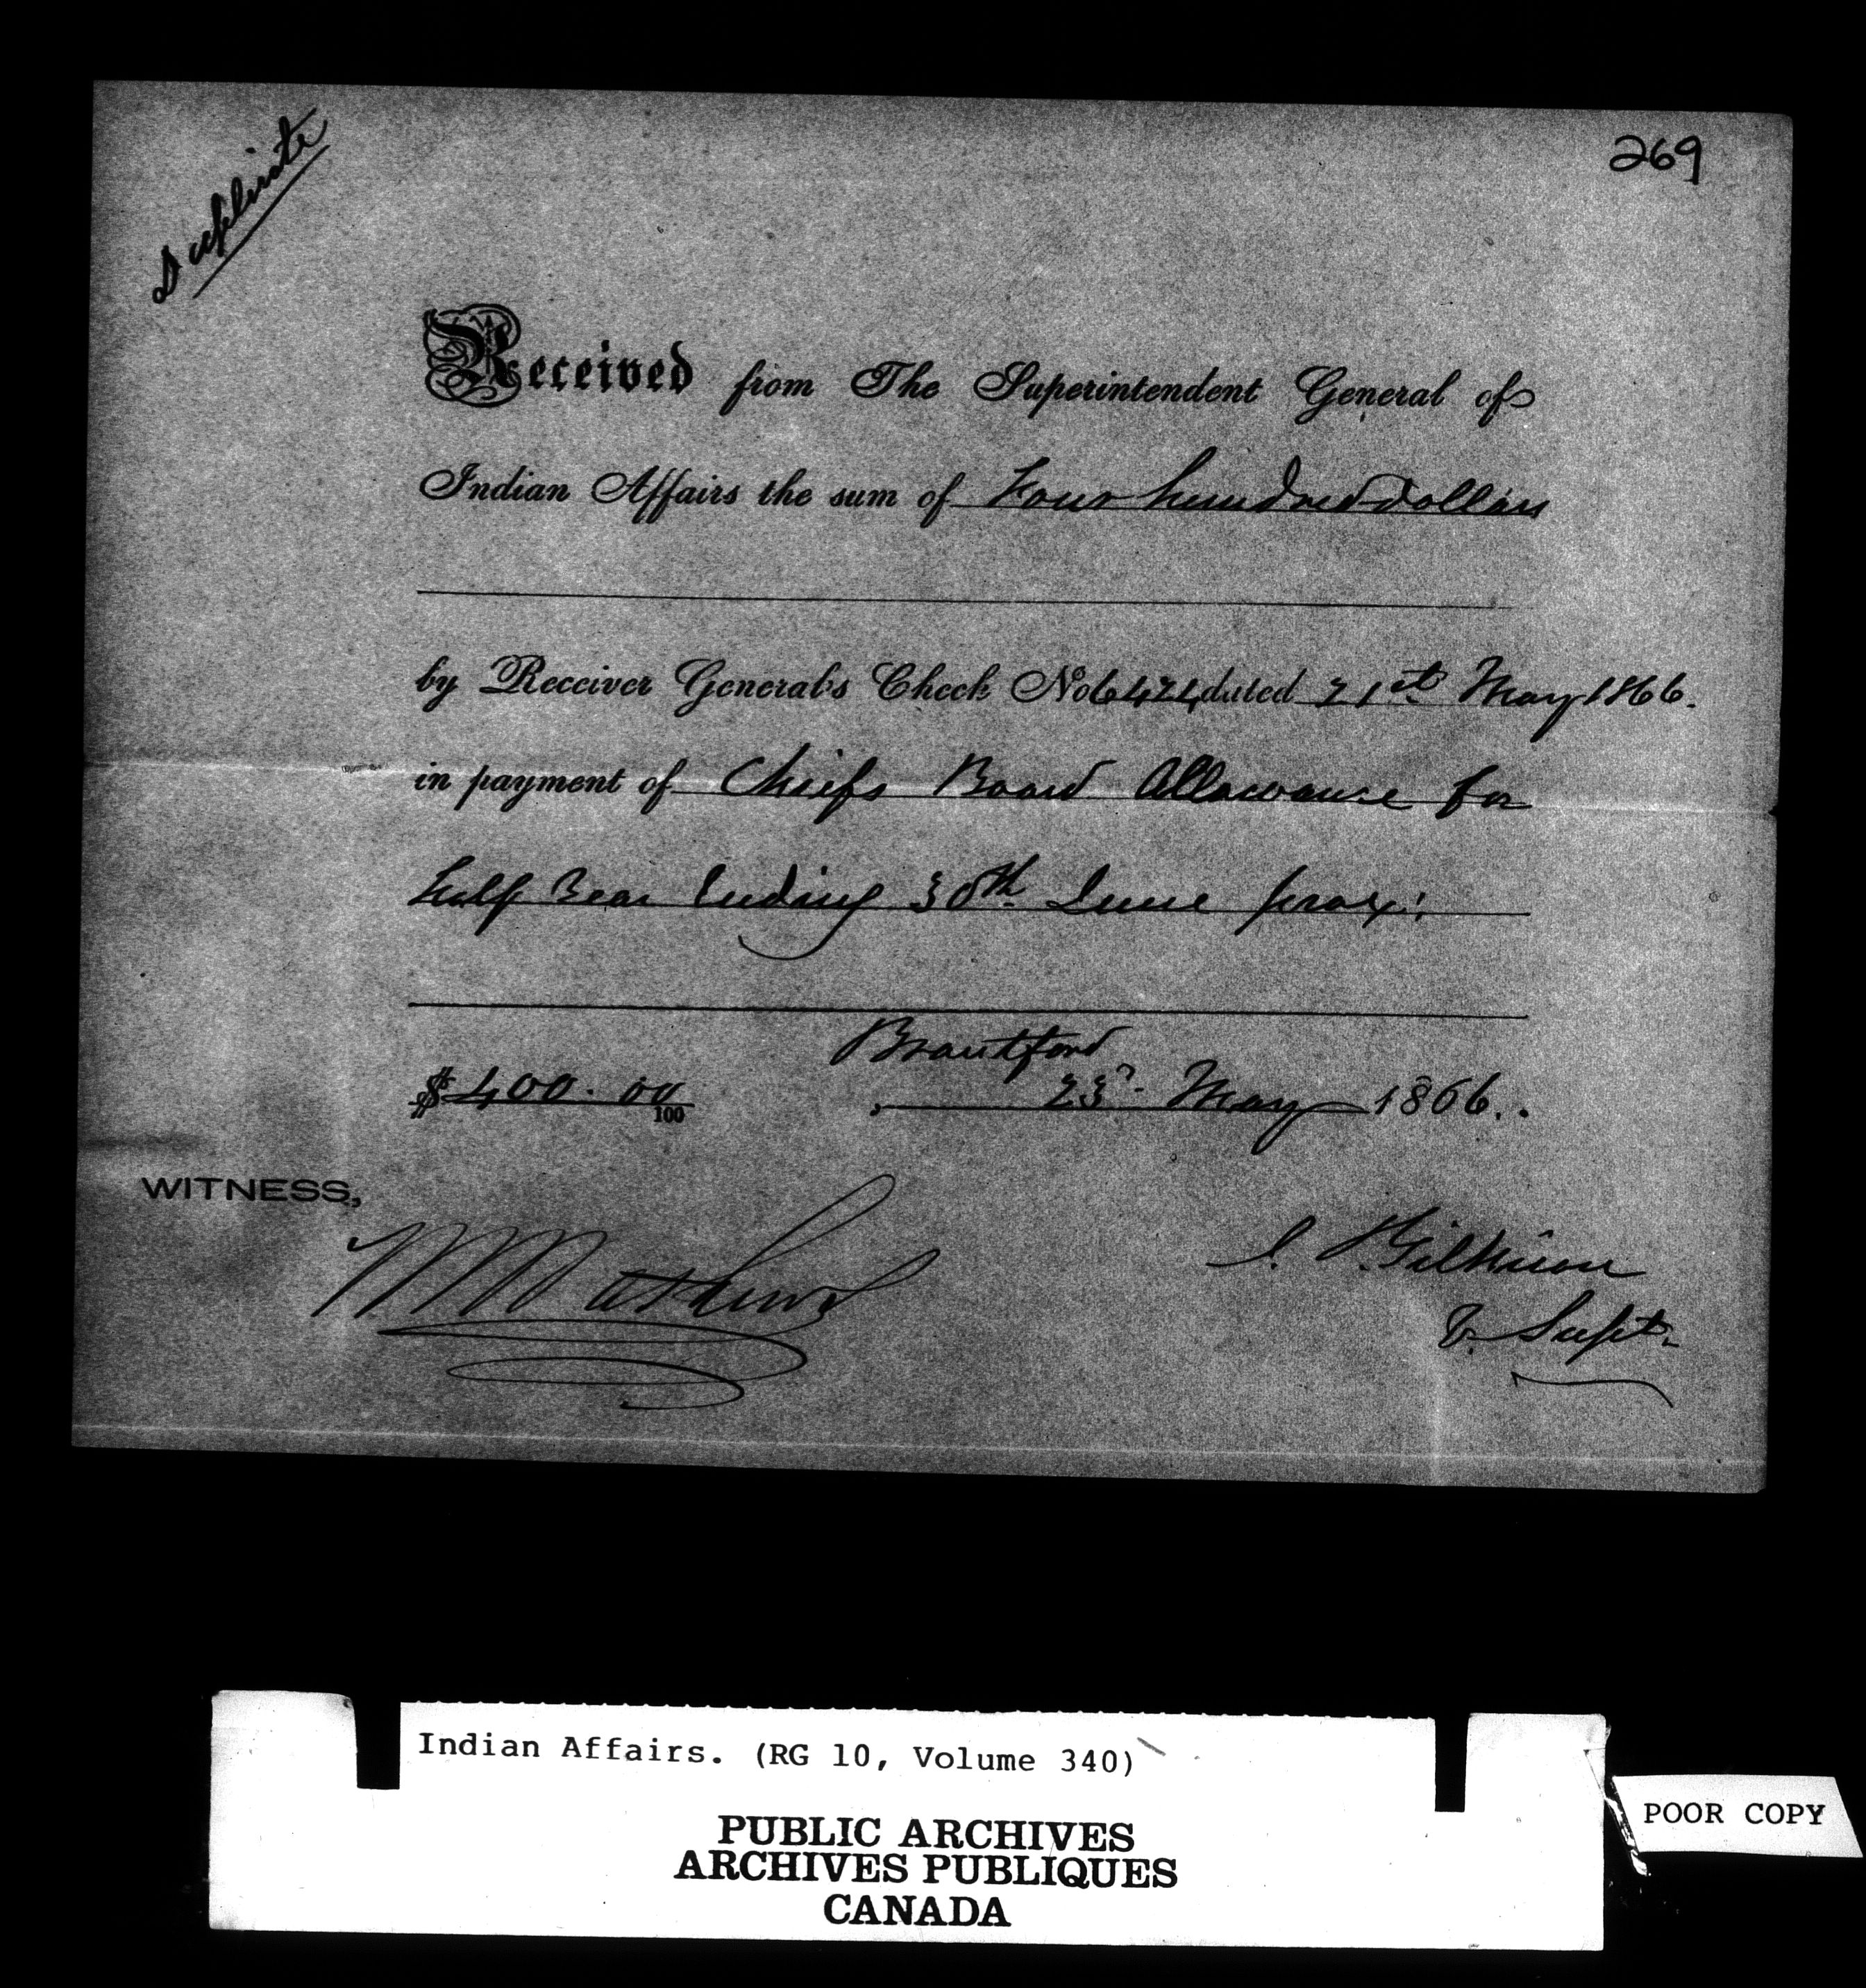 Duplicate
269
Received from The Superintendent General of
Indian Affairs the sum of Four hundred dollars
by Receiver General's Check No dated 21st May 1866.
in payment of Chiefs Board Allowance for
half Year Ending 30th June prox:
Brantford
$400.00/100 23d May 1866.
WITNESS,
J. Gilkison
V. Supt.
Indian Affairs. (RG 10, Volume 340)
PUBLIC ARCHIVES
ARCHIVES PUBLIQUES
CANADA
POOR COPY